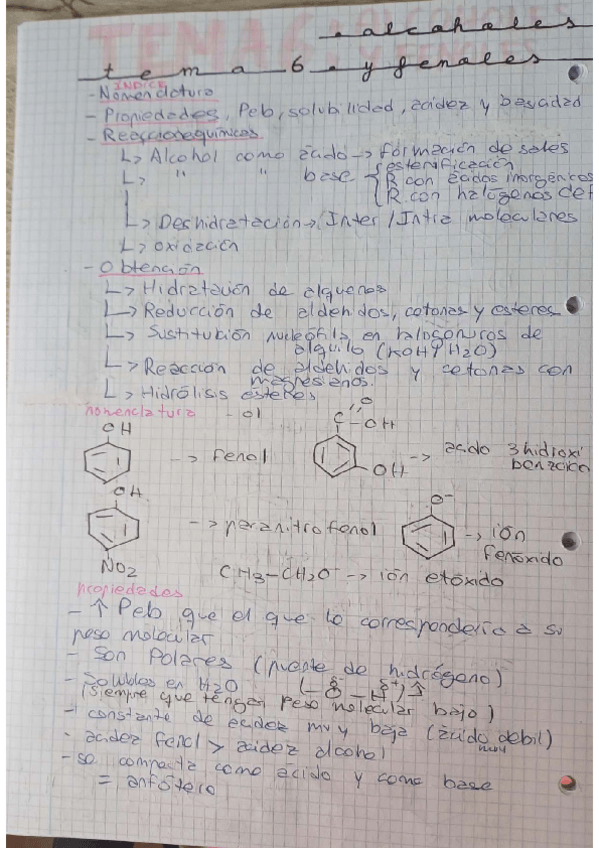 . alcoholes
tema 6. y fenoles
INDICE
- Nomenclatura
- Propiedades, Peb, solubilidad, acidez y basicidad
- Reacciones químicas
↳ Alcohol como ácido → formación de sales
↳ " " base { esterificación
R con ácidos inorgánicos
R con halógenos de
↳ Deshidratación → Inter / Intra moleculares
↳ oxidación
- Obtención
↳ Hidratación de alquenos
↳ Reducción de aldehidos, cetonas y esteres
↳ Sustitución nucleófila en halogenuros de
alquilo (KOH y H2O)
↳ Reacción de aldehidos y cetonas con
magnesianos.
↳ Hidrólisis ésteres
nomenclatura - ol
OH → fenol
C O - OH OH → ácido 3 hidroxi
benzoico
OH NO2 → paranitrofenol
O- → ión
fenóxido
CH3-CH2O- → ión etóxido
propiedades
- ↑ Peb que el que le correspondería a su
peso molecular
- Son Polares (puente de hidrógeno)
- Solubles en H2O (-O-H) δ- δ+ ↑
(siempre que tengan peso molecular bajo)
- constante de acidez muy baja (ácido muy debil)
- acidez fenol > acidez alcohol
- se comporta como ácido y como base
= anfótero